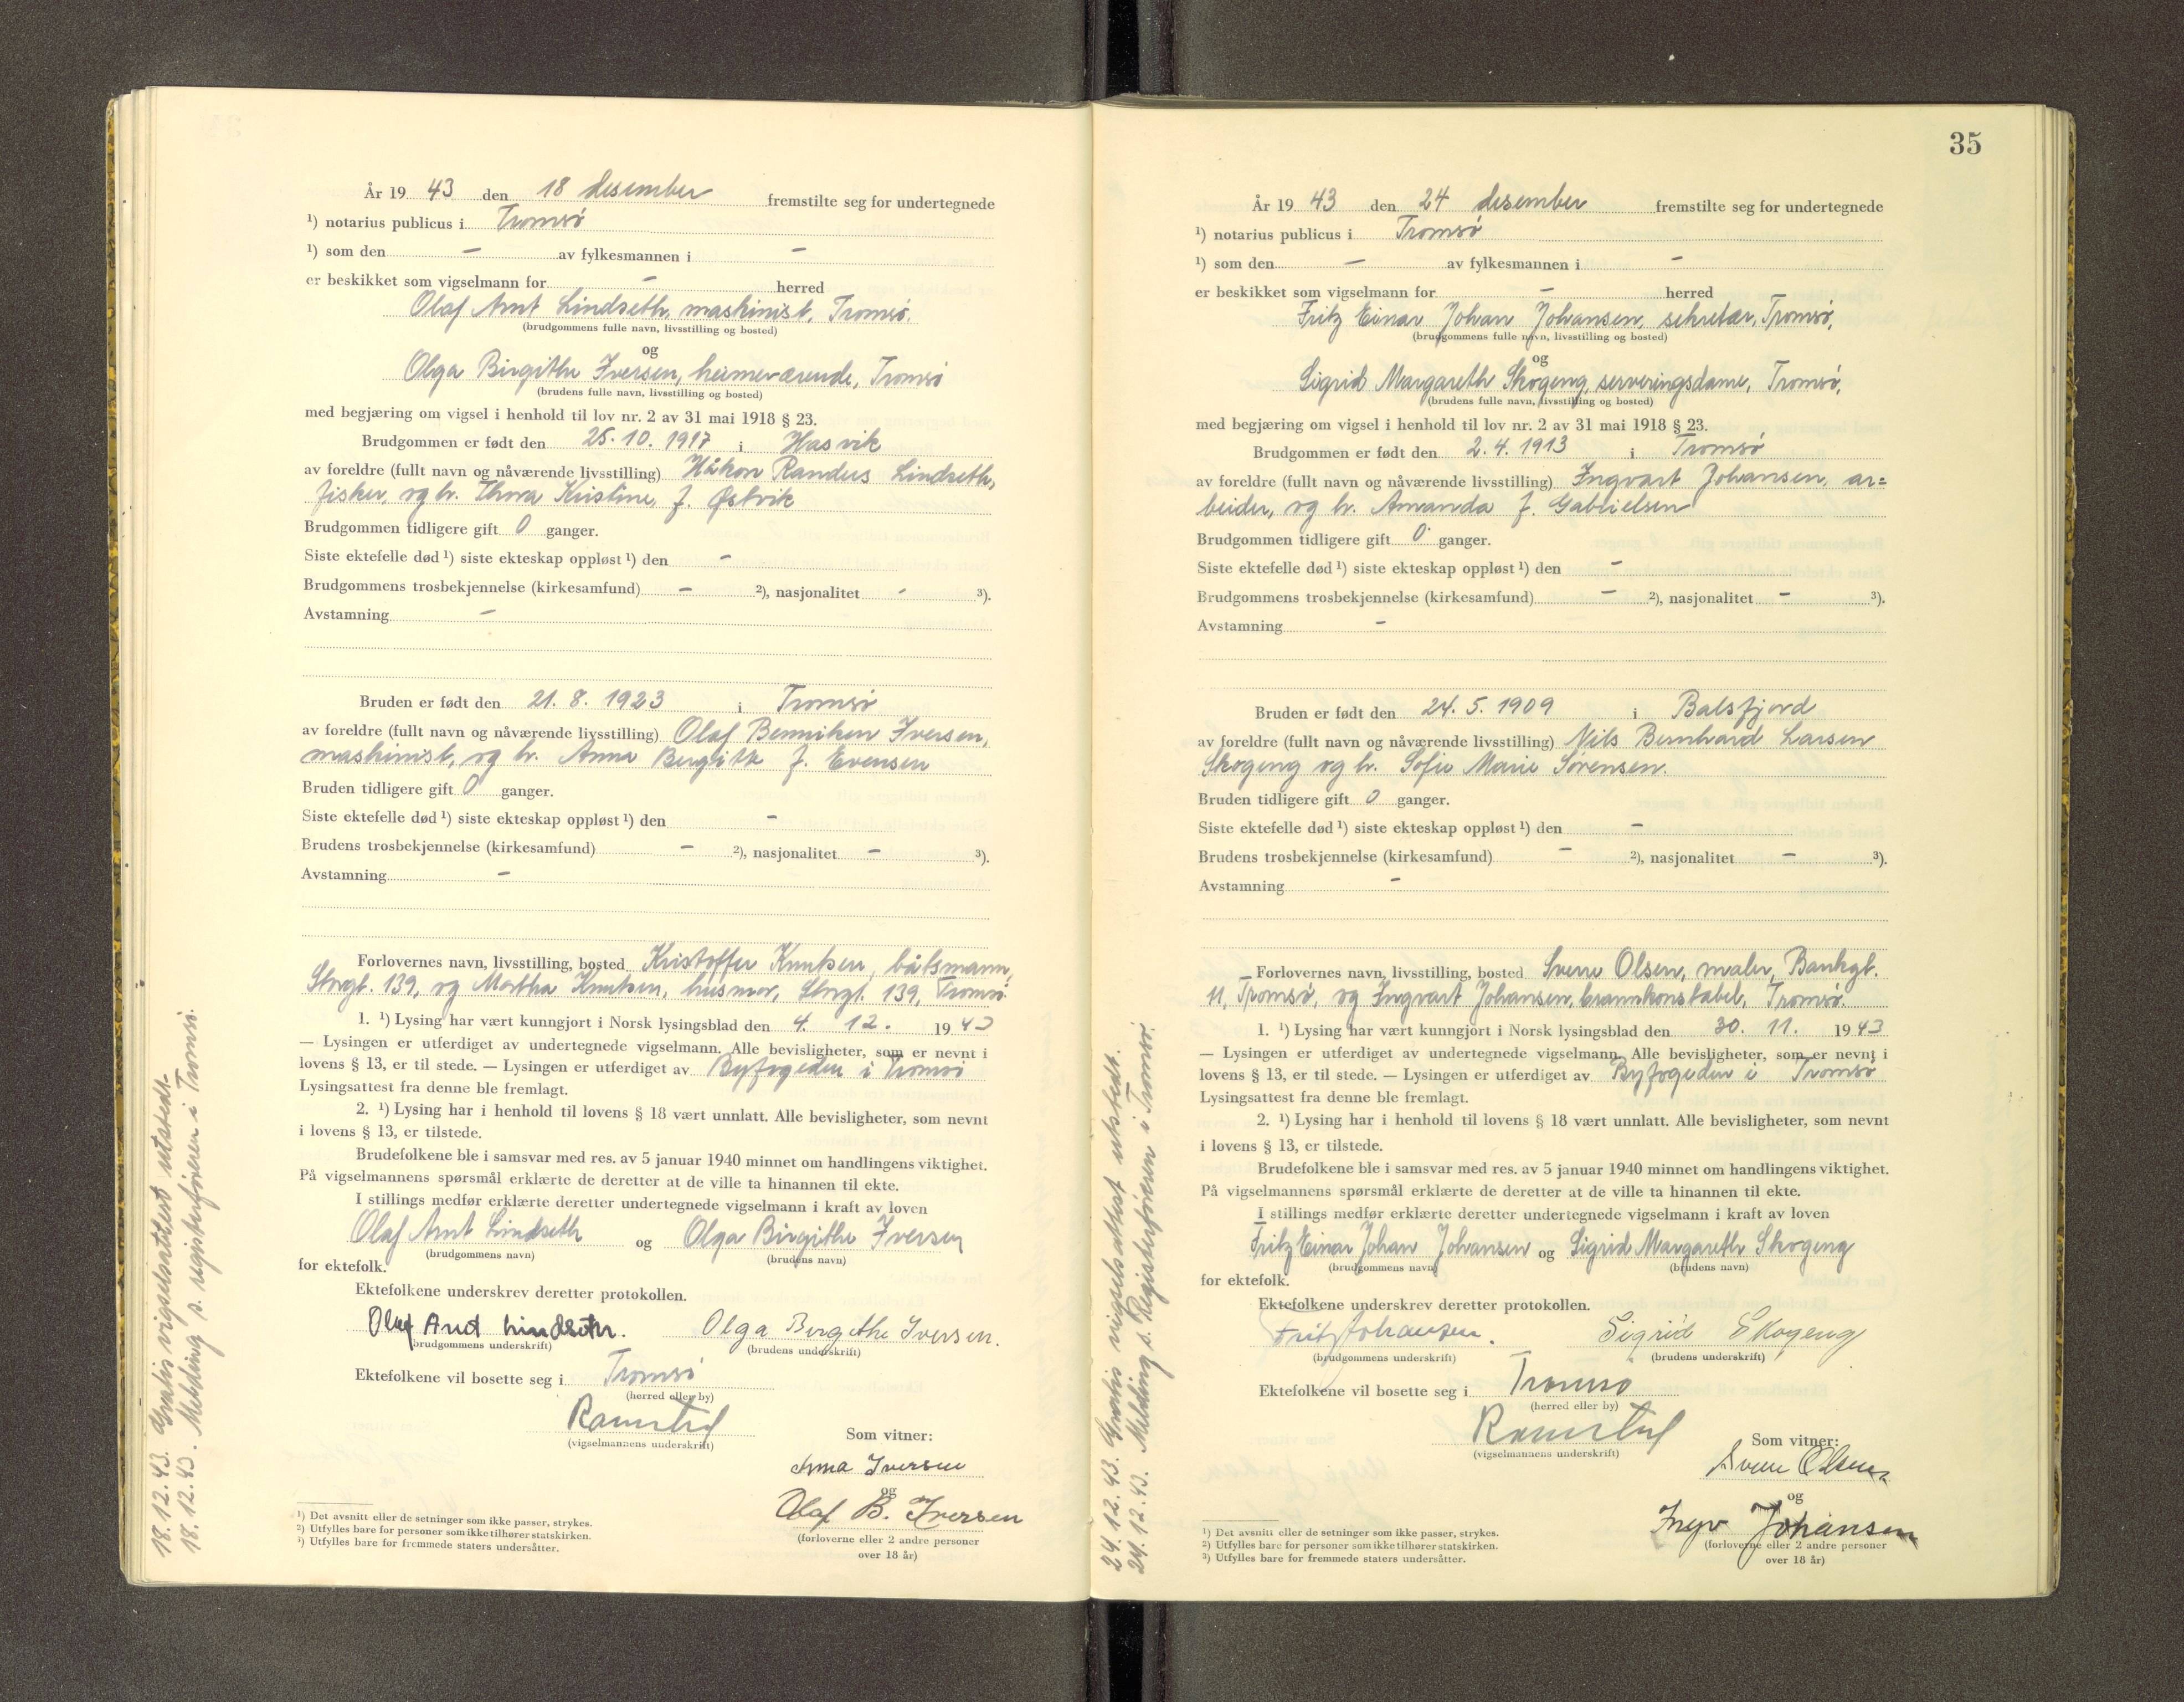 År 19 43 den 18 desember fremstilte seg for undertegnede
¹) notarius publicus i Tromsø
¹) som den – av fylkesmannen i –
er beskikket som vigselmann for – herred
Olaf Arnt Lindseth, maskinist, Tromsø.
(brudgommens fulle navn, livsstilling og bosted)
og
Olga Birgithe Iversen, heimeværende, Tromsø
(brudens fulle navn, livsstilling og bosted)
med begjæring om vigsel i henhold til lov nr. 2 av 31 mai 1918 § 23.
Brudgommen er født den 25. 10. 1917 i Hasvik
av foreldre (fullt navn og nåværende livsstilling) Håkon Randers Lindseth,
fisker, og h. Thora Kristine, f. Østvik
Brudgommen tidligere gift 0 ganger.
Siste ektefelle død ¹) siste ekteskap oppløst ¹) den –
Brudgommens trosbekjennelse (kirkesamfund) – ²), nasjonalitet – ³).
Avstamning –
Bruden er født den 21. 8. 1923 i Tromsø
av foreldre (fullt navn og nåværende livsstilling) Olaf Benniken Iversen,
maskinist, og h. Anna Bergitte f. Evensen
Bruden tidligere gift 0 ganger.
Siste ektefelle død ¹) siste ekteskap oppløst ¹) den –
Brudens trosbekjennelse (kirkesamfund) – ²), nasjonalitet – ³).
Avstamning –
Forlovernes navn, livsstilling, bosted Kristoffer Knutsen, båtsmann,
Storgt. 139, og Martha Knutsen, husmor, Storgt. 139, Tromsø.
1. ¹) Lysing har vært kunngjort i Norsk lysingsblad den 4. 12. 19 43
— Lysingen er utferdiget av undertegnede vigselmann. Alle bevisligheter, som er nevnt i
lovens § 13, er til stede. — Lysingen er utferdiget av Byfogeden i Tromsø
Lysingsattest fra denne ble fremlagt.
2. ¹) Lysing har i henhold til lovens § 18 vært unnlatt. Alle bevisligheter, som nevnt
i lovens § 13, er tilstede.
Brudefolkene ble i samsvar med res. av 5 januar 1940 minnet om handlingens viktighet.
På vigselmannens spørsmål erklærte de deretter at de ville ta hinannen til ekte.
I stillings medfør erklærte deretter undertegnede vigselmann i kraft av loven
Olaf Arnt Lindseth og Olga Birgithe Iversen
(brudgommens navn) (brudens navn)
for ektefolk.
Ektefolkene underskrev deretter protokollen.
Olaf Arnt Lindseth. Olga Bergethe Iversen.
(brudgommens underskrift) (brudens underskrift)
Ektefolkene vil bosette seg i Tromsø
(herred eller by)
Ramstad
(vigselmannens underskrift)
Som vitner:
Anna Iversen
og
Olaf B. Iversen
(forloverne eller 2 andre personer
over 18 år)
¹) Det avsnitt eller de setninger som ikke passer, strykes.
²) Utfylles bare for personer som ikke tilhører statskirken.
³) Utfylles bare for fremmede staters undersåtter.
18. 12. 43. Gratis vigselsattest utstedt.
18. 12. 43. Melding s. registerføreren i Tromsø.
35
År 19 43 den 24 desember fremstilte seg for undertegnede
¹) notarius publicus i Tromsø
¹) som den – av fylkesmannen i –
er beskikket som vigselmann for – herred
Fritz Einar Johan Johansen, sekretær, Tromsø,
(brudgommens fulle navn, livsstilling og bosted)
og
Sigrid Margareth Skogeng, serveringsdame, Tromsø,
(brudens fulle navn, livsstilling og bosted)
med begjæring om vigsel i henhold til lov nr. 2 av 31 mai 1918 § 23.
Brudgommen er født den 2. 4. 1913 i Tromsø
av foreldre (fullt navn og nåværende livsstilling) Ingvart Johansen, ar=
beider, og h. Amanda f. Gabrielsen
Brudgommen tidligere gift 0 ganger.
Siste ektefelle død ¹) siste ekteskap oppløst ¹) den –
Brudgommens trosbekjennelse (kirkesamfund) – ²), nasjonalitet – ³).
Avstamning –
Bruden er født den 24. 5. 1909 i Balsfjord
av foreldre (fullt navn og nåværende livsstilling) Nils Bernhard Larsen
Skogeng og h. Sofie Marie Sørensen.
Bruden tidligere gift 0 ganger.
Siste ektefelle død ¹) siste ekteskap oppløst ¹) den –
Brudens trosbekjennelse (kirkesamfund) – ²), nasjonalitet – ³).
Avstamning –
Forlovernes navn, livsstilling, bosted Sverre Olsen, maler, Bankgt.
11, Tromsø, og Ingvart Johansen, brannkonstabel, Tromsø.
1. ¹) Lysing har vært kunngjort i Norsk lysingsblad den 30. 11. 19 43
— Lysingen er utferdiget av undertegnede vigselmann. Alle bevisligheter, som er nevnt i
lovens § 13, er til stede. — Lysingen er utferdiget av Byfogeden i Tromsø
Lysingsattest fra denne ble fremlagt.
2. ¹) Lysing har i henhold til lovens § 18 vært unnlatt. Alle bevisligheter, som nevnt
i lovens § 13, er tilstede.
Brudefolkene ble i samsvar med res. av 5 januar 1940 minnet om handlingens viktighet.
På vigselmannens spørsmål erklærte de deretter at de ville ta hinannen til ekte.
I stillings medfør erklærte deretter undertegnede vigselmann i kraft av loven
Fritz Einar Johan Johansen og Sigrid Margareth Skogeng
(brudgommens navn) (brudens navn)
for ektefolk.
Ektefolkene underskrev deretter protokollen.
Fritz Johansen. Sigrid Skogeng
(brudgommens underskrift) (brudens underskrift)
Ektefolkene vil bosette seg i Tromsø
(herred eller by)
Ramstad
(vigselmannens underskrift)
Som vitner:
Sverre Olsen
og
Ingv Johansen
(forloverne eller 2 andre personer
over 18 år)
¹) Det avsnitt eller de setninger som ikke passer, strykes.
²) Utfylles bare for personer som ikke tilhører statskirken.
³) Utfylles bare for fremmede staters undersåtter.
24. 12. 43. Gratis vigselsattest utstedt.
24. 12. 43. Melding s. Registerføreren i Tromsø.